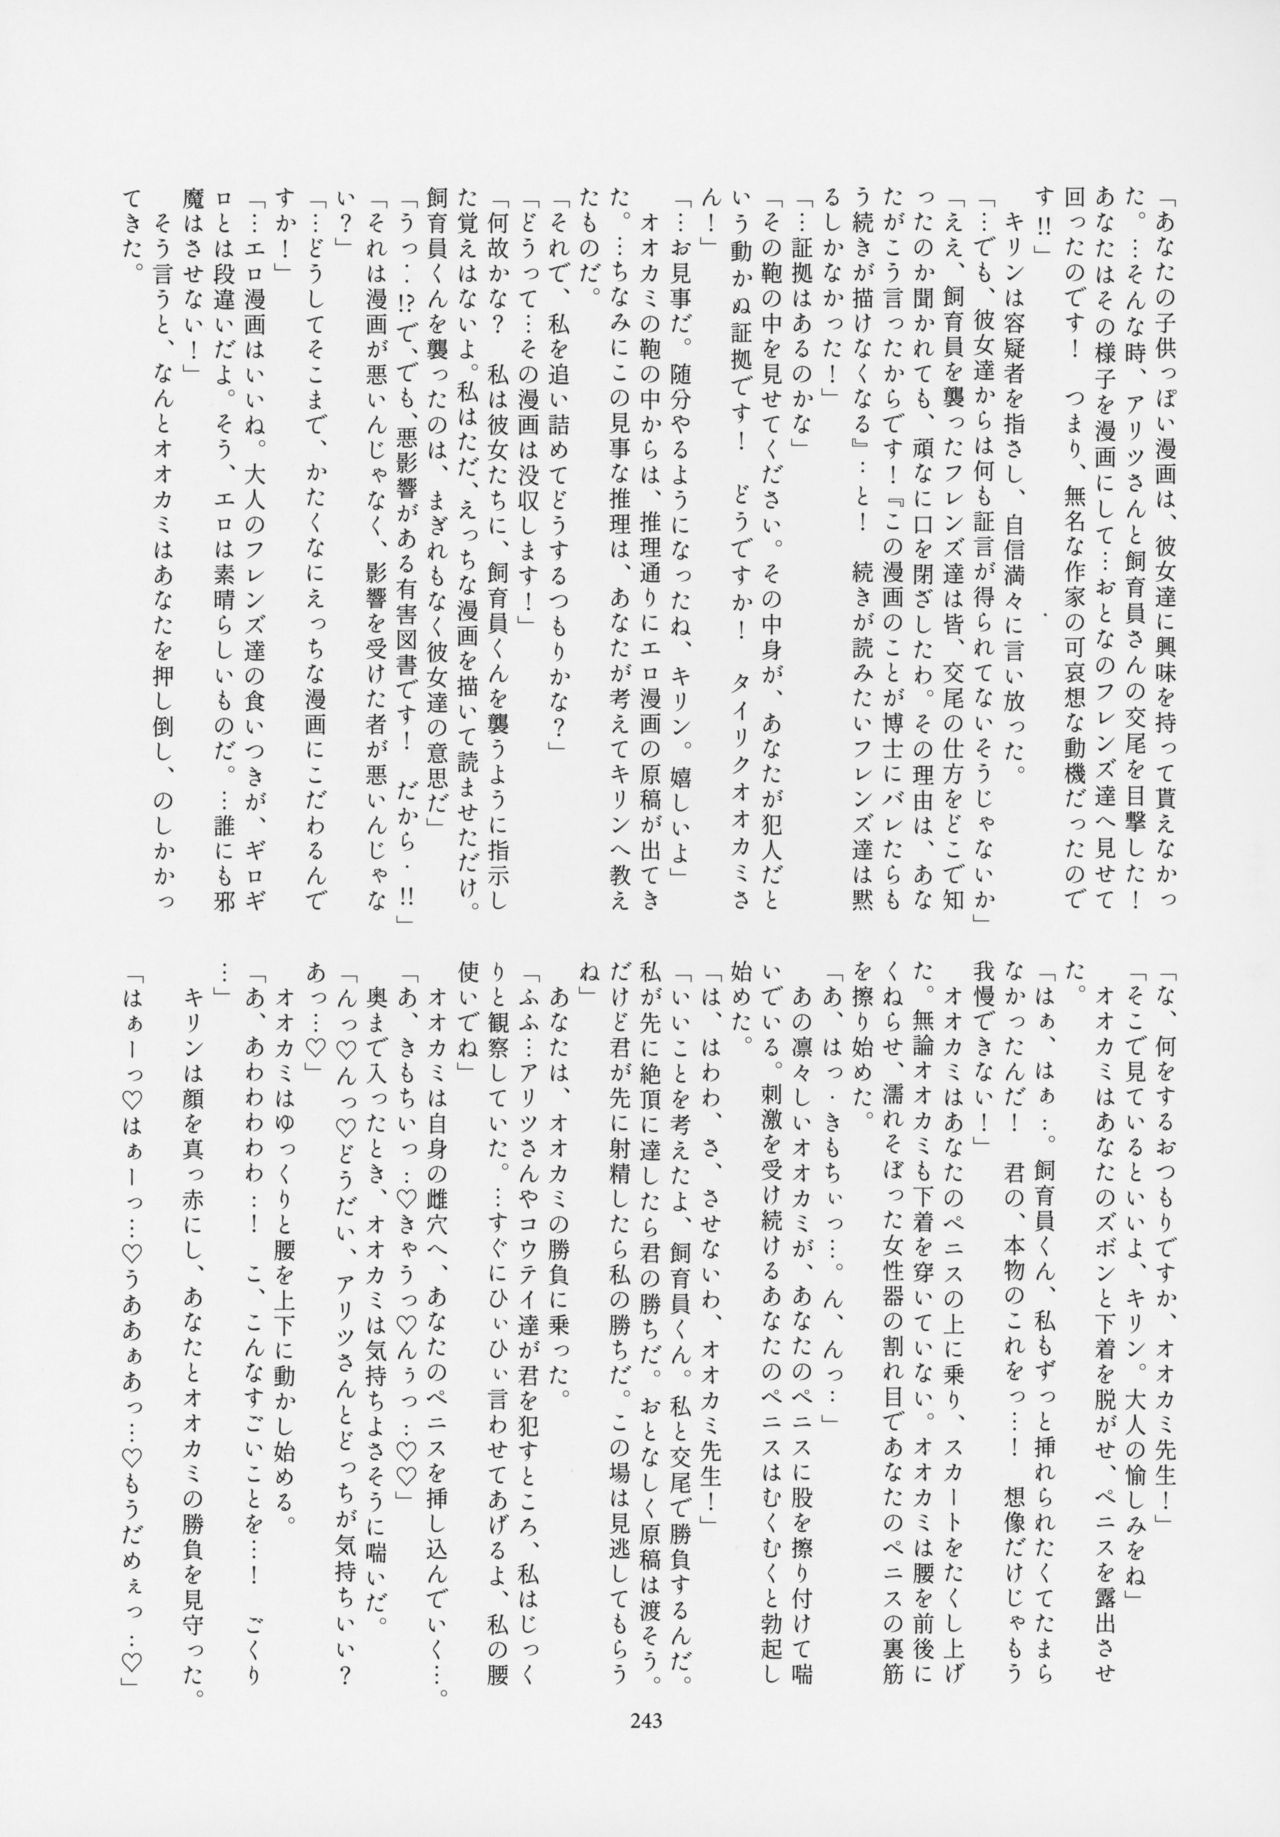 「あなたの子供っぽい漫画は、彼女達に興味を持って貰えなかっ
た。…そんな時、アリツさんと飼育員さんの交尾を目撃した！
あなたはその様子を漫画にして…おとなのフレンズ達へ見せて
回ったのです！　つまり、無名な作家の可哀想な動機だったので
す!!」
　キリンは容疑者を指さし、自信満々に言い放った。
「…でも、彼女達からは何も証言が得られてないそうじゃないか」
「ええ、飼育員を襲ったフレンズ達は皆、交尾の仕方をどこで知
ったのか聞かれても、頑なに口を閉ざしたわ。その理由は、あな
たがこう言ったからです！『この漫画のことが博士にバレたらも
う続きが描けなくなる』…と！　続きが読みたいフレンズ達は黙
るしかなかった！」
「…証拠はあるのかな」
「その鞄の中を見せてください。その中身が、あなたが犯人だと
いう動かぬ証拠です！　どうですか！　タイリクオオカミさ
ん！」
「…お見事だ。随分やるようになったね、キリン。嬉しいよ」
　オオカミの鞄の中からは、推理通りにエロ漫画の原稿が出てき
た。…ちなみにこの見事な推理は、あなたが考えてキリンへ教え
たものだ。
「それで、私を追い詰めてどうするつもりかな？」
「どうって…その漫画は没収します！」
「何故かな？　私は彼女たちに、飼育員くんを襲うように指示し
た覚えはないよ。私はただ、えっちな漫画を描いて読ませただけ。
飼育員くんを襲ったのは、まぎれもなく彼女達の意思だ」
「うっ‥!?で、でも、悪影響がある有害図書です！　だから‥!!」
「それは漫画が悪いんじゃなく、影響を受けた者が悪いんじゃな
い？」
「…どうしてそこまで、かたくなにえっちな漫画にこだわるんで
すか！」
「…エロ漫画はいいね。大人のフレンズ達の食いつきが、ギロギ
ロとは段違いだよ。そう、エロは素晴らしいものだ。…誰にも邪
魔はさせない！」
　そう言うと、なんとオオカミはあなたを押し倒し、のしかかっ
てきた。
「な、何をするおつもりですか、オオカミ先生！」
「そこで見ているといいよ、キリン。大人の愉しみをね」
　オオカミはあなたのズボンと下着を脱がせ、ペニスを露出させ
た。
「はぁ、はぁ…。飼育員くん、私もずっと挿れられたくてたまら
なかったんだ！　君の、本物のこれをっ…！　想像だけじゃもう
我慢できない！」
　オオカミはあなたのペニスの上に乗り、スカートをたくし上げ
た。無論オオカミも下着を穿いていない。オオカミは腰を前後に
くねらせ、濡れそぼった女性器の割れ目であなたのペニスの裏筋
を擦り始めた。
「あ、はっ‥きもちぃっ…。ん、んっ…」
　あの凛々しいオオカミが、あなたのペニスに股を擦り付けて喘
いでいる。刺激を受け続けるあなたのペニスはむくむくと勃起し
始めた。
「は、はわわ、さ、させないわ、オオカミ先生！」
「いいことを考えたよ、飼育員くん。私と交尾で勝負するんだ。
私が先に絶頂に達したら君の勝ちだ。おとなしく原稿は渡そう。
だけど君が先に射精したら私の勝ちだ。この場は見逃してもらう
ね」
　あなたは、オオカミの勝負に乗った。
「ふふ…アリツさんやコウテイ達が君を犯すところ、私はじっく
りと観察していた。…すぐにひぃひぃ言わせてあげるよ、私の腰
使いでね」
　オオカミは自身の雌穴へ、あなたのペニスを挿し込んでいく…。
「あ、きもちいっ…♡きゃうっ♡んぅっ…♡♡」
　奥まで入ったとき、オオカミは気持ちよさそうに喘いだ。
「んっ♡んっ♡どうだい、アリツさんとどっちが気持ちいい？
あっ…♡」
　オオカミはゆっくりと腰を上下に動かし始める。
「あ、あわわわわ…！　こ、こんなすごいことを…！　ごくり
…」
　キリンは顔を真っ赤にし、あなたとオオカミの勝負を見守った。
「はぁーっ♡はぁーっ…♡うああぁあっ…♡もうだめぇっ…♡」
243